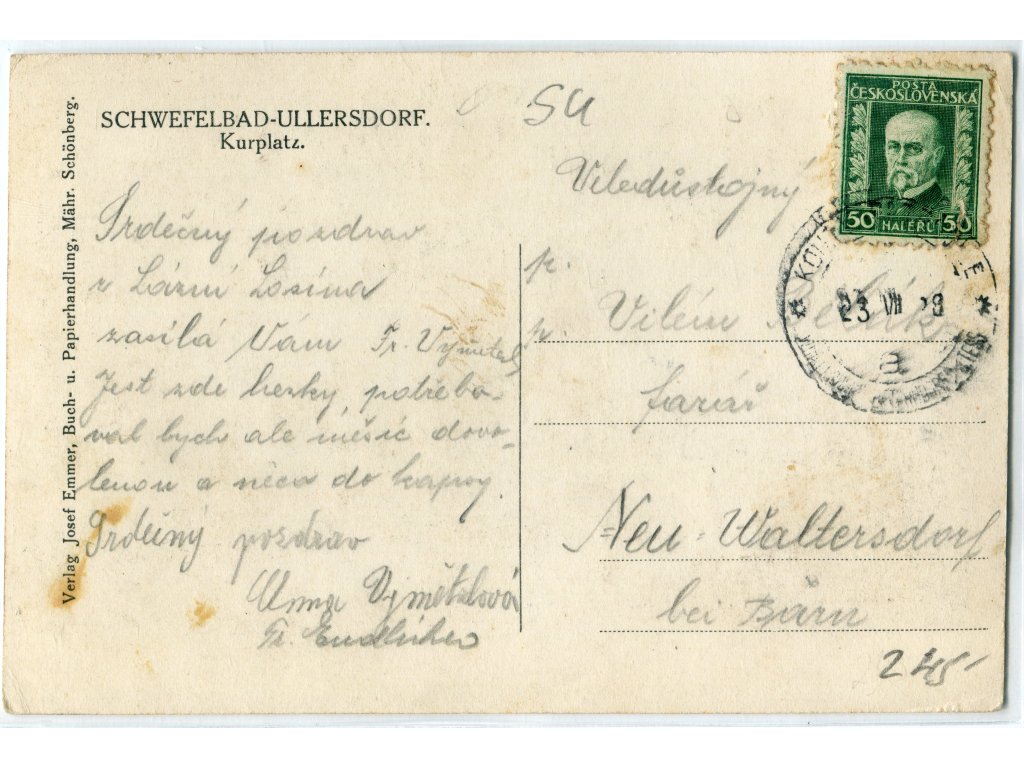 SCHWEFELBAD-ULLERSDORF.
Kurplatz.
Verlag Josef Emmer, Buch- u. Papierhandlung, Mähr. Schönberg.
Srdečný pozdrav
z Lázní Losina
zasílá Vám Fr. Vymětal
Jest zde hezky, potřebo-
val bych ale měsíc dovo-
lenou a něco do kapsy.
Srdečný pozdrav
Anna Vymětalová
Fr.
SU
POŠTA
ČESKOSLOVENSKÁ
50 HALÉŘŮ 50
23 VII 28
a
Veledůstojný
p.
p. Vilém
farář
Neu-Waltersdorf
bei Bärn
245-